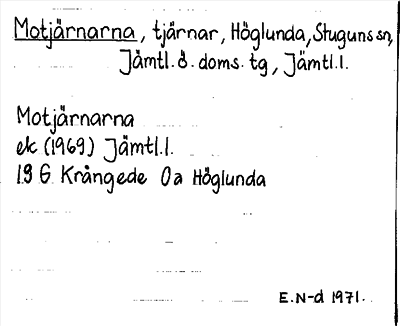 Motjärnarna, tjärnar, Höglunda, Stuguns sn,
Jämtl. ö. doms. tg, Jämtl. l.
Motjärnarna
ek (1969) Jämtl. l.
19 G Krångede 0a Höglunda
E. N-d 1971.